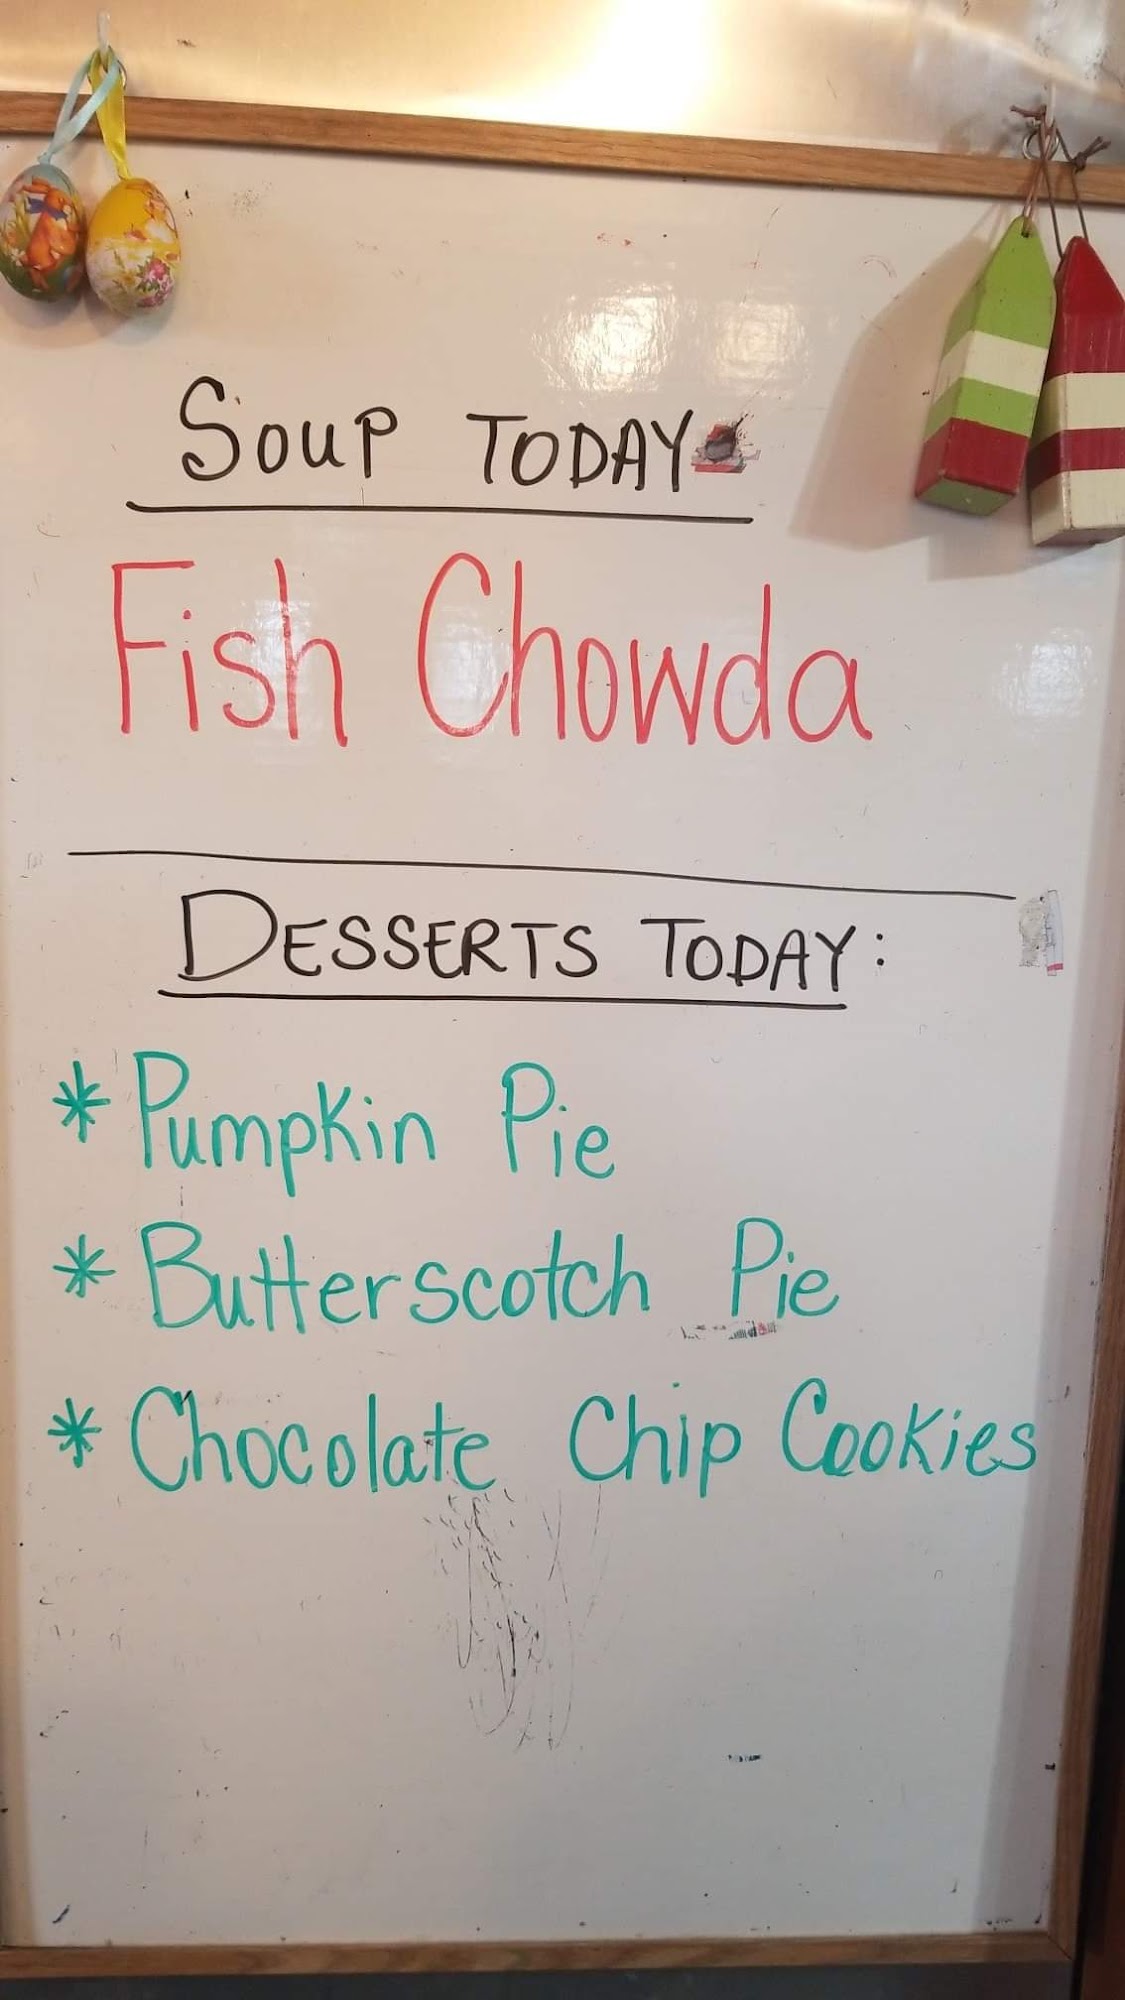 Soup TODAY
Fish Chowda
DESSERTS TODAY:
* Pumpkin Pie
* Butterscotch Pie
* Chocolate Chip Cookies